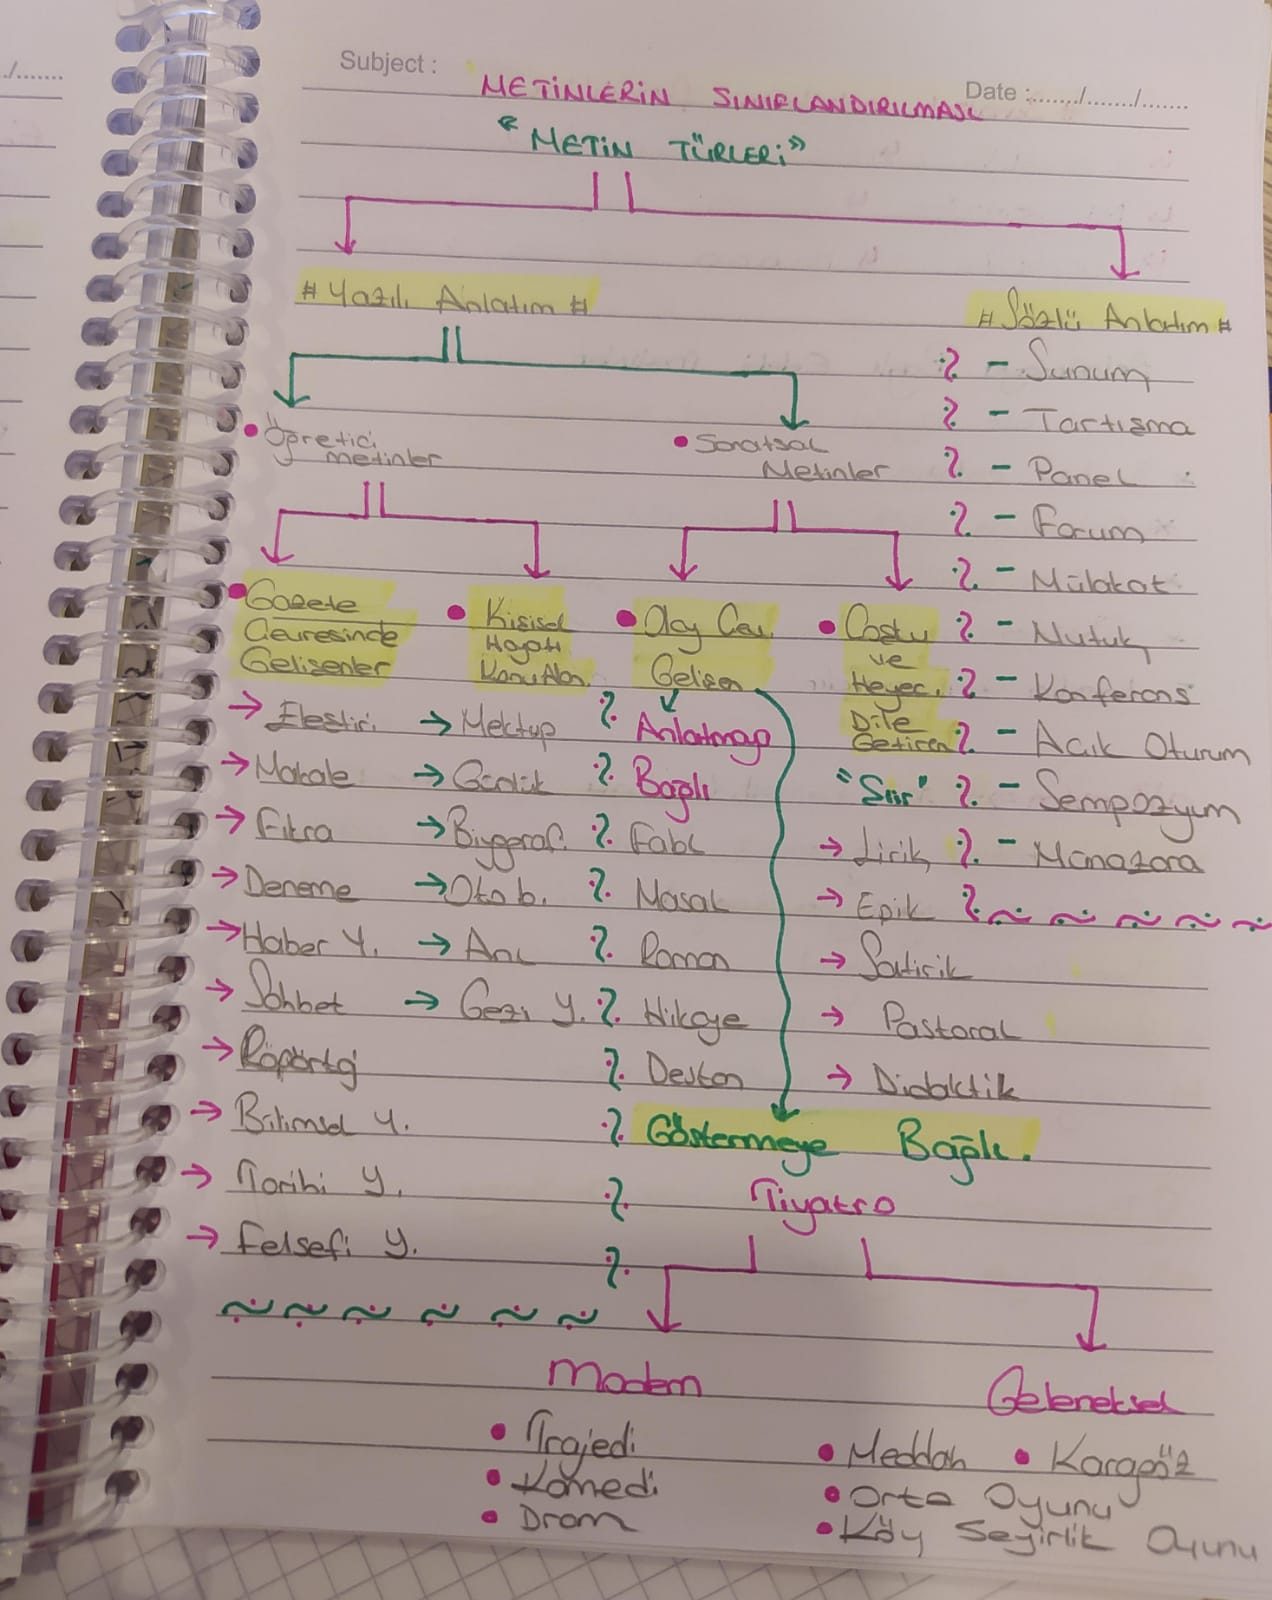 Subject :
Date :......./......./.......
METİNLERİN SINIFLANDIRILMASI
"METİN TÜRLERİ"
# Yazılı Anlatım #
• Öğretici
metinler
• Sanatsal
Metinler
• Gazete
Çevresinde
Gelişenler
→ Eleştiri
→ Makale
→ Fıkra
→ Deneme
→ Haber Y.
→ Sohbet
→ Röportaj
→ Bilimsel Y.
→ Tarihi Y.
→ Felsefi Y.
• Kişisel
Hayatı
Konu Alan
→ Mektup
→ Günlük
→ Biyograf.
→ Oto b.
→ Anı
→ Gezi Y.
• Olay Çev.
Gelişen
Anlatmaya
Bağlı
Fabl
Masal
Roman
Hikaye
Destan
Göstermeye Bağlı.
Tiyatro
Modern
• Trajedi
• Komedi
• Dram
Geleneksel
• Meddah • Karagöz
• Orta Oyunu
• Köy Seyirlik Oyunu
• Coşku
ve
Heyec.
Dile
Getiren
"Şiir"
→ Lirik
→ Epik
→ Satirik
→ Pastoral
→ Didaktik
# Sözlü Anlatım #
- Sunum
- Tartışma
- Panel
- Forum
- Mülakat
- Nutuk
- Konferans
- Açık Oturum
- Sempozyum
- Münazara